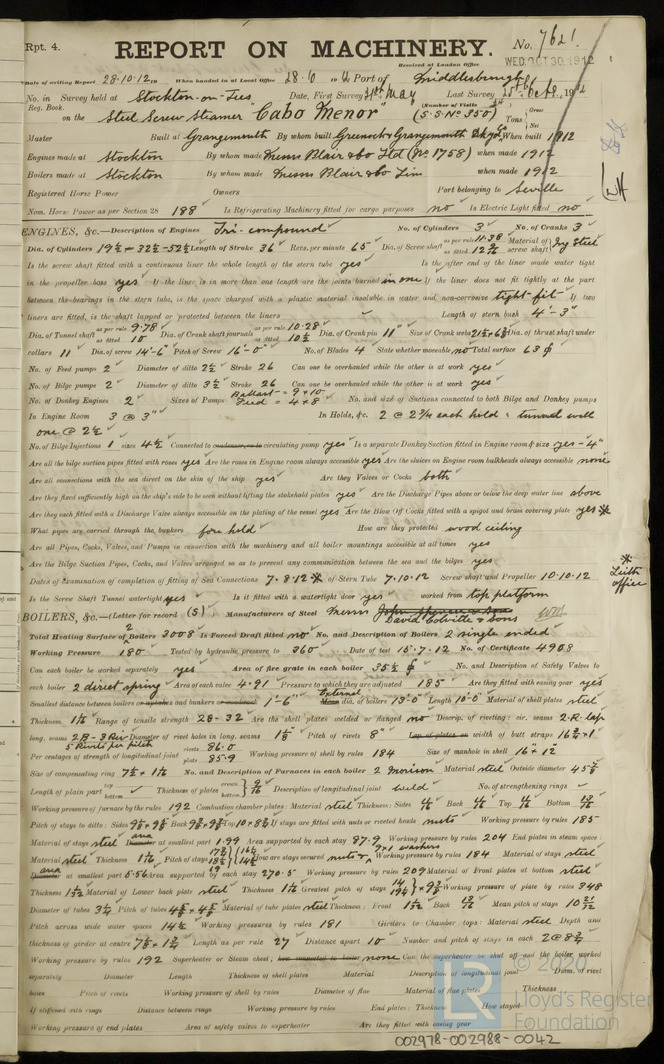 Rpt. 4.
REPORT ON MACHINERY. No. 7621
Received at London Office WED. OCT 30 1912
Date of writing Report 28.10.12 When handed in at Local Office 28.6 19 Port of Middlesbrough
No. in Survey held at Stockton-on-Tees Date, First Survey 21st May Last Survey Octr, 1912
Reg. Book. (Number of Visits
on the Steel Screw Steamer "Cabo Menor" (S.S. No 350) Tons Gross Net
Master Built at Grangemouth By whom built Greenock & Grangemouth Dkyd Co When built 1912
Engines made at Stockton By whom made Messrs Blair & Co Ltd (No 1758) when made 1912
Boilers made at Stockton By whom made Messrs Blair & Co Lim when made 1912
Registered Horse Power Owners Port belonging to Seville
Nom. Horse Power as per Section 28 188 Is Refrigerating Machinery fitted for cargo purposes no Is Electric Light fitted no
ENGINES, &c.—Description of Engines Tri-compound No. of Cylinders 3 No. of Cranks 3
Dia. of Cylinders 19½ - 32½ - 52½ Length of Stroke 36 Revs. per minute 65 Dia. of Screw shaft as per rule 11.38 as fitted Material of screw shaft Ing Steel
Is the screw shaft fitted with a continuous liner the whole length of the stern tube yes Is the after end of the liner made water tight
in the propeller boss yes If the liner is in more than one length are the joints burned in one If the liner does not fit tightly at the part
between the bearings in the stern tube, is the space charged with a plastic material insoluble in water and non-corrosive tight-fit If two
liners are fitted, is the shaft lapped or protected between the liners Length of stern bush 4'-3"
Dia. of Tunnel shaft as per rule 9.78 as fitted 10 Dia. of Crank shaft journals as per rule 10.28 as fitted 10½ Dia. of Crank pin 11" Size of Crank webs Dia. of thrust shaft under
collars 11 Dia. of screw 14'-6" Pitch of Screw 16'-0" No. of Blades 4 State whether moveable no Total surface 63
No. of Feed pumps 2 Diameter of ditto 2½ Stroke 26 Can one be overhauled while the other is at work yes
No. of Bilge pumps 2 Diameter of ditto 3½ Stroke 26 Can one be overhauled while the other is at work yes
No. of Donkey Engines 2 Sizes of Pumps Ballast = 9 x 10 Feed = 4 x 8 No. and size of Suctions connected to both Bilge and Donkey pumps
In Engine Room 3 @ 3" In Holds, &c. 2 @ 2¾ each hold & tunnel well
one @ 2½
No. of Bilge Injections 1 sizes 4½ Connected to condenser, or to circulating pump yes Is a separate Donkey Suction fitted in Engine room & size yes - 4"
Are all the bilge suction pipes fitted with roses yes Are the roses in Engine room always accessible yes Are the sluices on Engine room bulkheads always accessible none
Are all connections with the sea direct on the skin of the ship yes Are they Valves or Cocks both
Are they fixed sufficiently high on the ship's side to be seen without lifting the stokehold plates yes Are the Discharge Pipes above or below the deep water line above
Are they each fitted with a Discharge Valve always accessible on the plating of the vessel yes Are the Blow Off Cocks fitted with a spigot and brass covering plate yes *
What pipes are carried through the bunkers fore hold How are they protected wood ceiling
Are all Pipes, Cocks, Valves, and Pumps in connection with the machinery and all boiler mountings accessible at all times yes
Are the Bilge Suction Pipes, Cocks, and Valves arranged so as to prevent any communication between the sea and the bilges yes
* Leith office
Dates of examination of completion of fitting of Sea Connections 7.8.12 * of Stern Tube 7.10.12 Screw shaft and Propeller 10.10.12
Is the Screw Shaft Tunnel watertight yes Is it fitted with a watertight door yes worked from top platform
BOILERS, &c.—(Letter for record (S) Manufacturers of Steel Messrs John Spencer & Sons
David Colville & Sons
Total Heating Surface of 2 Boilers 3008 Is Forced Draft fitted no No. and Description of Boilers 2 single ended
Working Pressure 180 Tested by hydraulic pressure to 360 Date of test 15.7.12 No. of Certificate 4908
Can each boiler be worked separately yes Area of fire grate in each boiler 35½ No. and Description of Safety Valves to
each boiler 2 direct spring Area of each valve 4.91 Pressure to which they are adjusted 185 Are they fitted with easing gear yes
Smallest distance between boilers or uptakes and bunkers or woodwork 1'-6" External Mean dia. of boilers 13'-0" Length 10'-0" Material of shell plates steel
Thickness Range of tensile strength 28-32 Are the shell plates welded or flanged no Descrip. of riveting: cir. seams 2.R. lap
long. seams 2B-3Riv Diameter of rivet holes in long. seams Pitch of rivets 8" Lap of plates or width of butt straps
5 Rivets per pitch
Per centages of strength of longitudinal joint rivets 86.0 plate 85.9 Working pressure of shell by rules 184 Size of manhole in shell 16" x 12"
Size of compensating ring No. and Description of Furnaces in each boiler 2 Morison Material steel Outside diameter
Length of plain part top bottom Thickness of plates crown bottom Description of longitudinal joint weld No. of strengthening rings
Working pressure of furnace by the rules 192 Combustion chamber plates: Material steel Thickness: Sides Back Top Bottom
Pitch of stays to ditto: Sides Back Top If stays are fitted with nuts or riveted heads nuts Working pressure by rules 185
Material of stays steel area Diameter at smallest part 1.99 Area supported by each stay 87.9 Working pressure by rules 204 End plates in steam space:
Material steel Thickness Pitch of stays How are stays secured nuts & washers Working pressure by rules 184 Material of stays steel
area Diameter at smallest part 5.56 Area supported by each stay 270.5 Working pressure by rules 209 Material of Front plates at bottom steel
Thickness Material of Lower back plate steel Thickness Greatest pitch of stays Working pressure of plate by rules 348
Diameter of tubes 3¼ Pitch of tubes Material of tube plates steel Thickness: Front Back Mean pitch of stays
Pitch across wide water spaces 14½ Working pressures by rules 181 Girders to Chamber tops: Material steel Depth and
thickness of girder at centre Length as per rule 27 Distance apart 10 Number and pitch of stays in each 2 @
Working pressure by rules 192 Superheater or Steam chest; how connected to boiler none Can the superheater be shut off and the boiler worked
separately Diameter Length Thickness of shell plates Material Description of longitudinal joint Diam. of rivet
holes Pitch of rivets Working pressure of shell by rules Diameter of flue Material of flue plates Thickness
If stiffened with rings Distance between rings Working pressure by rules End plates: Thickness How stayed
Working pressure of end plates Area of safety valves to superheater Are they fitted with easing gear
© 2020
LR
Lloyd's Register
Foundation
002978-002988-0042